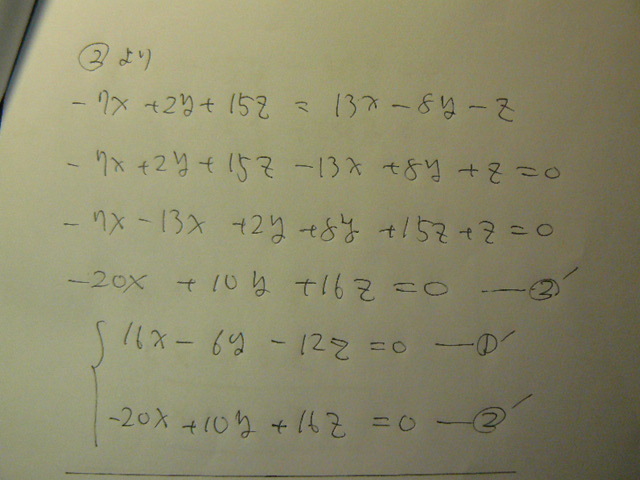 ② より
-7x + 2y + 15z = 13x - 8y - z
-7x + 2y + 15z - 13x + 8y + z = 0
-7x - 13x + 2y + 8y + 15z + z = 0
-20x + 10y + 16z = 0 —②′
{ 16x - 6y - 12z = 0 —①′
-20x + 10y + 16z = 0 —②′